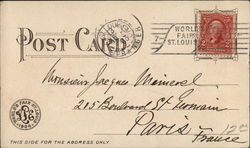 POST CARD
WORLD'S
FAIR
ST. LOUIS
Monsieur Jacques
205 Boulevard St Germain
Paris
France
12c
1904
THIS SIDE FOR THE ADDRESS ONLY